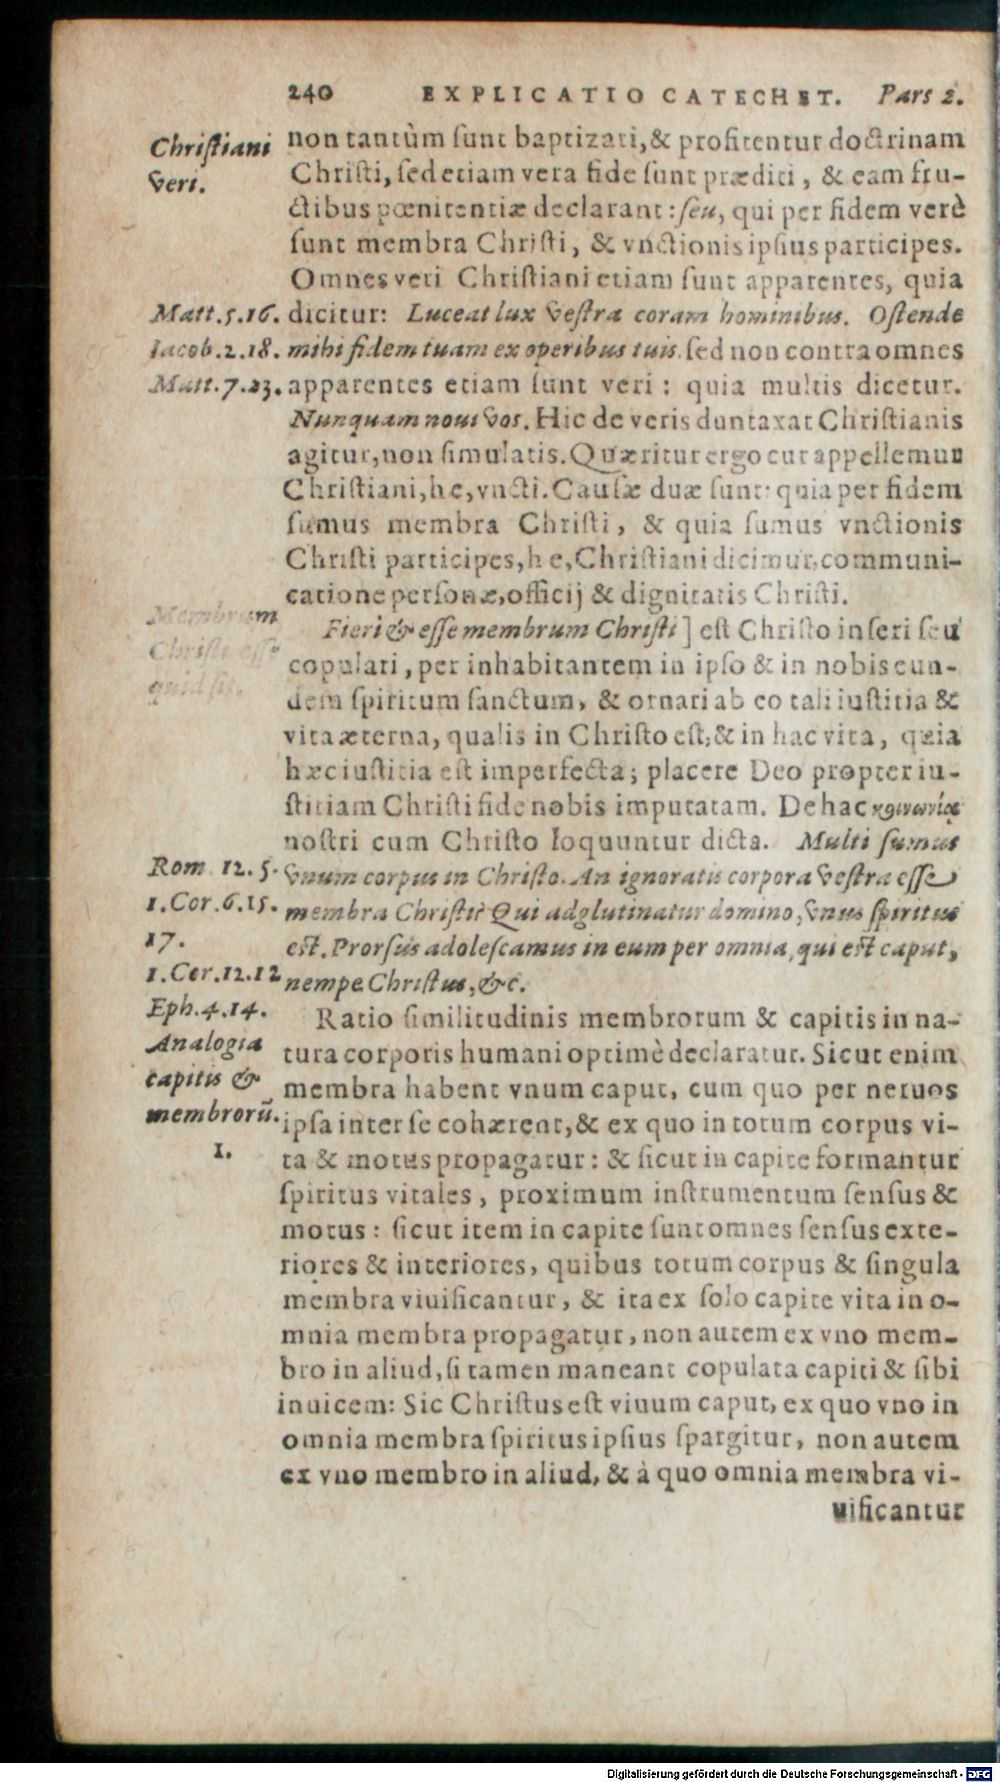 240 EXPLICATIO CATECHET. Pars 2.
Chriſtiani
veri.
non tantùm ſunt baptizati,& profitentur doctrinam
Chriſti, ſed etiam vera fide ſunt præditi, & eam fru-
ctibus pœnitentiæ declarant: ſeu, qui per fidem verè
ſunt membra Chriſti, & vnctionis ipſius participes.
Omnes veri Chriſtiani etiam ſunt apparentes, quia
Matt.5.16. dicitur: Luceat lux veſtra coram hominibus. Oſtende
Iacob.2.18. mihi fidem tuam ex operibus tuis. ſed non contra omnes
Matt.7.23. apparentes etiam ſunt veri: quia multis dicetur.
Nunquam noui vos. Hic de veris duntaxat Chriſtianis
agitur, non ſimulatis. Quæritur ergo cur appellemur
Chriſtiani, h e, vncti. Cauſæ duæ ſunt: quia per fidem
ſumus membra Chriſti, & quia ſumus vnctionis
Chriſti participes, h e, Chriſtiani dicimur, communi-
catione perſonæ, officij & dignitatis Chriſti.
Membrum
Chriſti eſſe
quid ſit.
Fieri & eſſe membrum Chriſti] eſt Chriſto inſeri ſeu
copulari, per inhabitantem in ipſo & in nobis eun-
dem ſpiritum ſanctum, & ornari ab eo tali iuſtitia &
vita æterna, qualis in Chriſto eſt, & in hac vita, quia
hæc iuſtitia eſt imperfecta; placere Deo propter iu-
ſtitiam Chriſti fide nobis imputatam. De hac κοινωνίᾳ
noſtri cum Chriſto loquuntur dicta. Multi ſumus
Rom. 12. 5. vnum corpus in Chriſto. An ignoratis corpora veſtra eſſe
1.Cor.6.15. membra Chriſti? Qui adglutinatur domino, vnus ſpiritus
17. eſt. Prorſus adoleſcamus in eum per omnia, qui eſt caput,
1.Cor.12.12 nempe Chriſtus, &c.
Eph.4.14.
Analogia
capitis &
membrorũ.
1.
Ratio ſimilitudinis membrorum & capitis in na-
tura corporis humani optimè declaratur. Sicut enim
membra habent vnum caput, cum quo per neruos
ipſa inter ſe cohærent, & ex quo in totum corpus vi-
ta & motus propagatur: & ſicut in capite formantur
ſpiritus vitales, proximum inſtrumentum ſenſus &
motus: ſicut item in capite ſunt omnes ſenſus exte-
riores & interiores, quibus totum corpus & ſingula
membra viuificantur, & ita ex ſolo capite vita in o-
mnia membra propagatur, non autem ex vno mem-
bro in aliud, ſi tamen maneant copulata capiti & ſibi
inuicem: Sic Chriſtus eſt viuum caput, ex quo vno in
omnia membra ſpiritus ipſius ſpargitur, non autem
ex vno membro in aliud, & à quo omnia membra vi-
uificantur
Digitalisierung gefördert durch die Deutsche Forschungsgemeinschaft - DFG